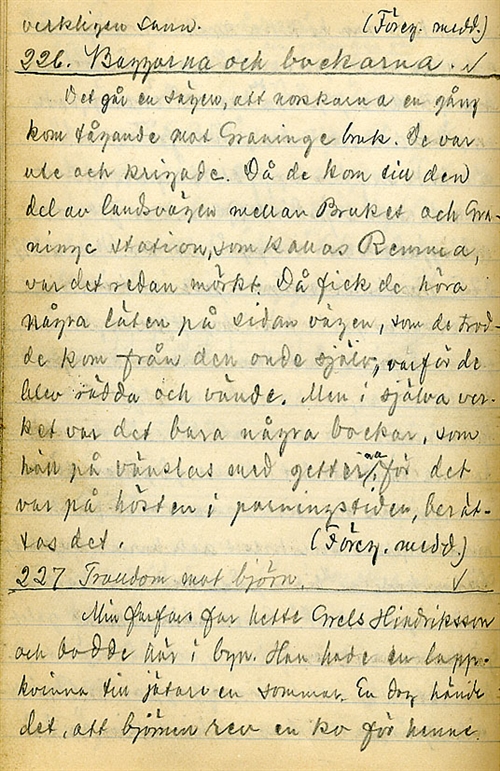 verkligen sann. (Föreg. medd.)
226. Baggarna och bockarna. ✓
Det går en sägen, att norskarna en gång
kom tågande mot Graninge bruk. De var
ute och krigade. Då de kom till den
del av landsvägen mellan Bruket och Gra-
ninge station, som kallas Remmia,
var det redan mörkt. Då fick de höra
några läten på sidan vägen, som de trod-
de kom från den onde själv, varför de
blev rädda och vände. Men i själva ver-
ket var det bara några bockar, som
höll på vänslas med getterna, för det
var på hösten i parningstiden, berät-
tas det. (Föreg. medd.)
227 Trolldom mot björn. ✓
Min farfars far hette Grels Hindriksson
och bodde här i byn. Han hade en lapp-
kvinna till jätare en sommar. En dag hände
det, att björnen rev en ko för henne.